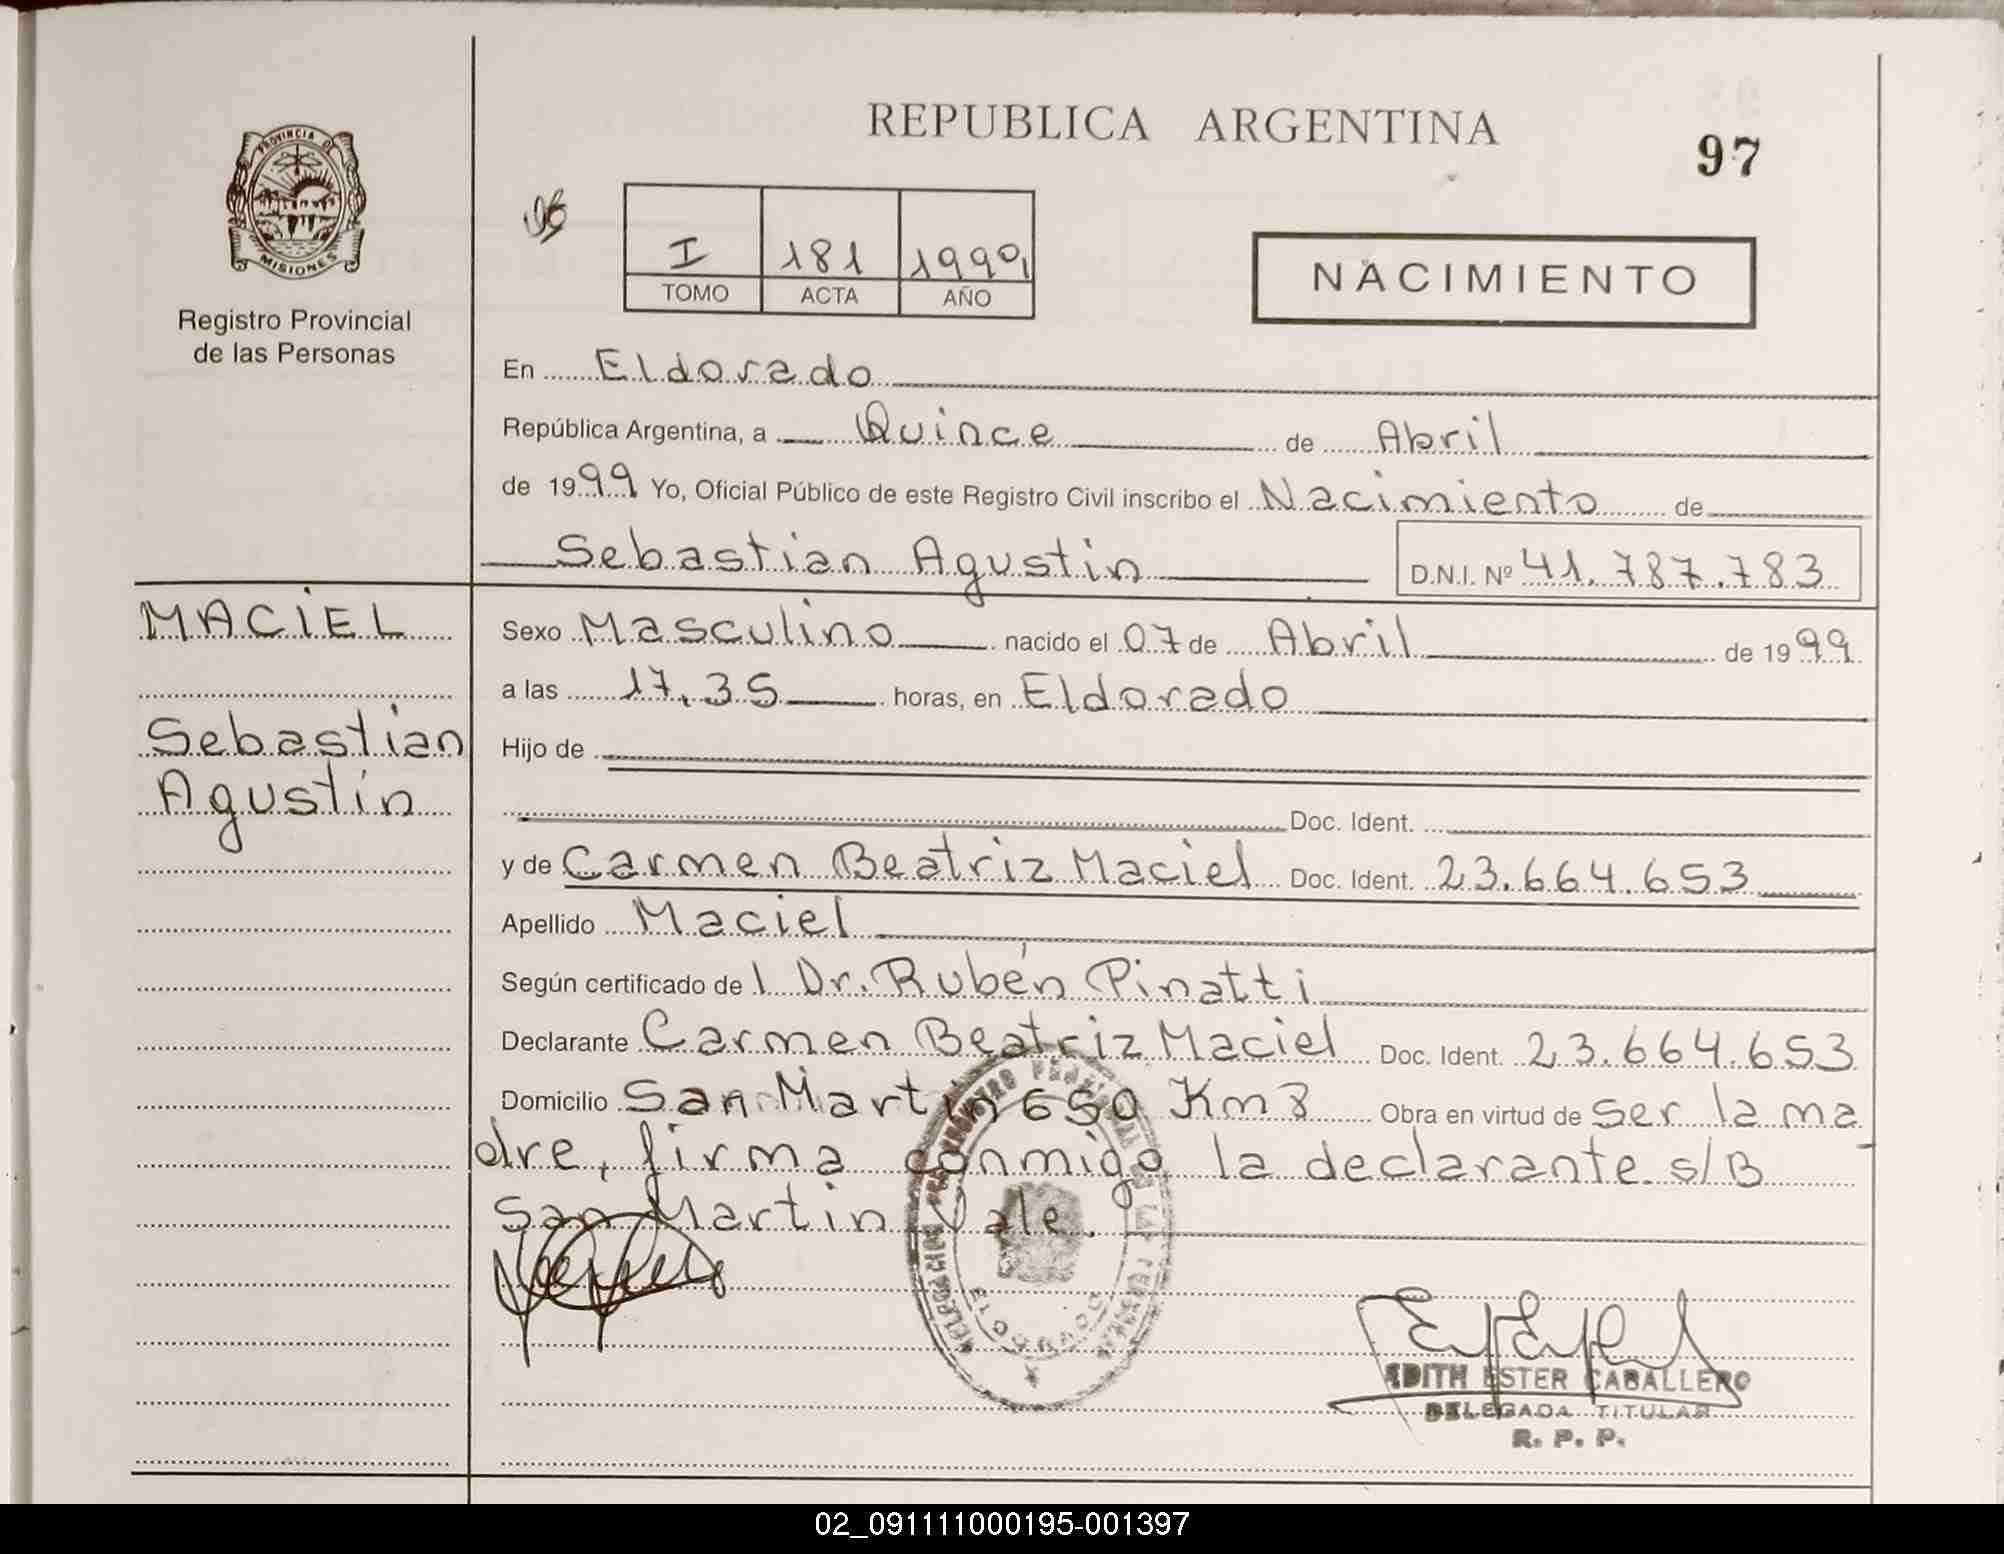 REPUBLICA ARGENTINA
97
PROVINCIA DE
MISIONES
Registro Provincial
de las Personas
I 181 1999
TOMO ACTA AÑO
NACIMIENTO
En Eldorado
República Argentina, a Quince de Abril
de 1999 Yo, Oficial Público de este Registro Civil inscribo el Nacimiento de
Sebastian Agustin D.N.I. Nº 41.787.783
MACIEL
Sebastian
Agustín
Sexo Masculino nacido el 07 de Abril de 1999
a las 17.35 horas, en Eldorado
Hijo de
Doc. Ident.
y de Carmen Beatriz Maciel Doc. Ident. 23.664.653
Apellido Maciel
Según certificado de l Dr. Rubén Pinatti
Declarante Carmen Beatriz Maciel Doc. Ident. 23.664.653
Domicilio San Martin 650 Km 8 Obra en virtud de ser la ma
dre, firma conmigo la declarante. s/B
San Martin Vale.
ELDORADO
EDITH ESTER CABALLERO
DELEGADA TITULAR
R. P. P.
02_091111000195-001397